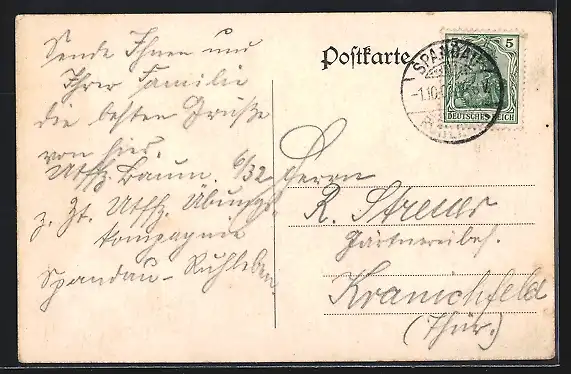 Sende Ihnen und
Ihrer Familie
die besten Grüße
von hier.
Utffz. Baum. 6/32
z. Zt. Utffz. Übungs-
kompagnie
Spandau-Ruhleben.
Postkarte
SPANDAU
-1.10.
5
DEUTSCHES REICH
Herrn
R. Streuer
Gärtnereibes.
Kranichfeld
(Thür.)